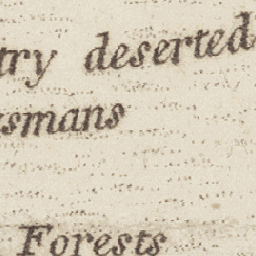 try deserted
smans
Forests